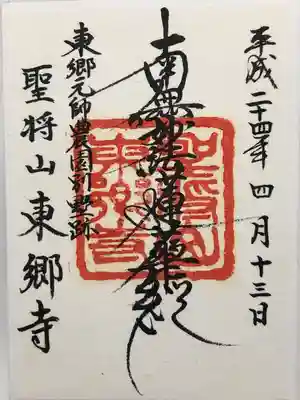 平成二十四年四月十三日
南無妙法蓮華経
東郷元師農園別墅跡
聖将山東郷寺